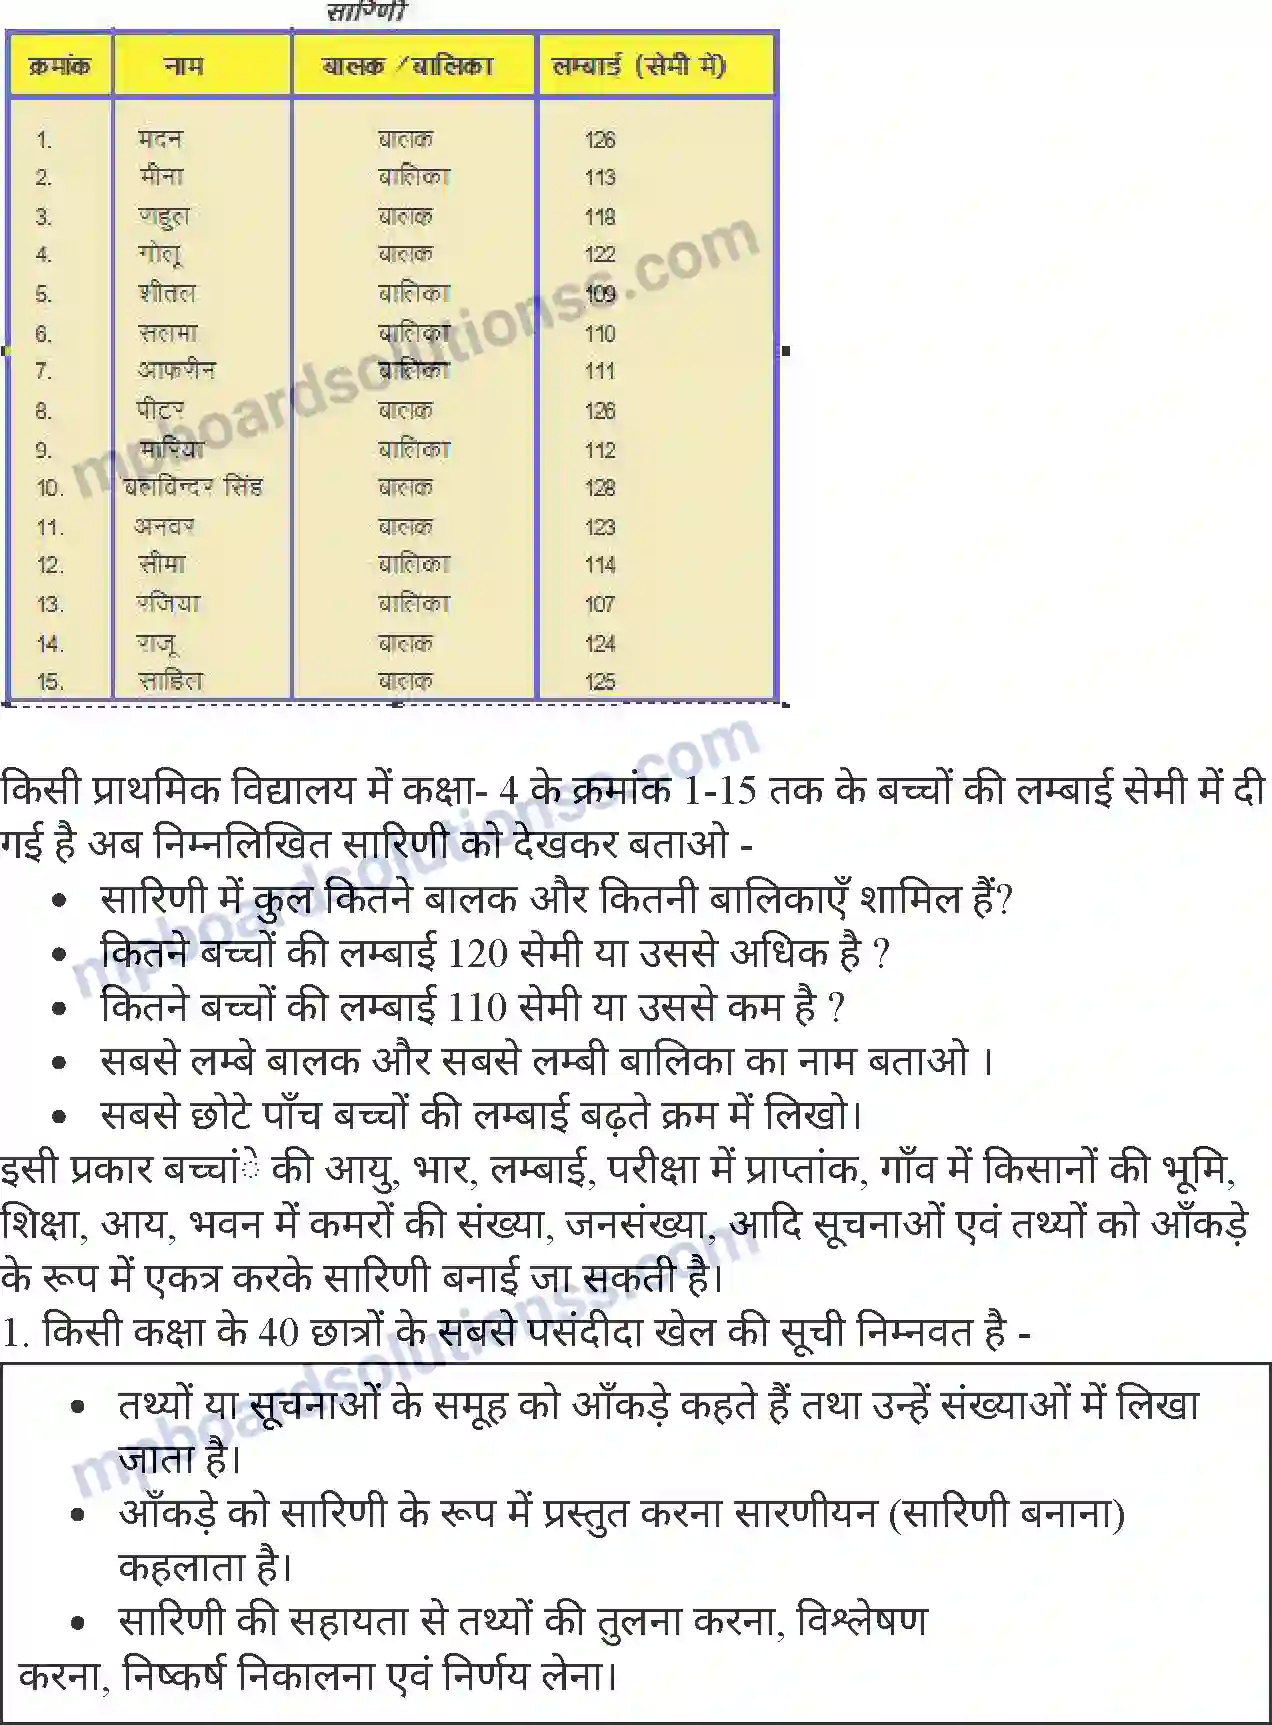 सारिणी
क्रमांक नाम बालक / बालिका लम्बाई (सेमी में)
1. मदन बालक 126
2. मीना बालिका 113
3. राहुल बालक 118
4. गोलू बालक 122
5. शीतल बालिका 109
6. सलमा बालिका 110
7. आफरीन बालिका 111
8. पीटर बालक 126
9. मारिया बालिका 112
10. बलविन्दर सिंह बालक 128
11. अनवर बालक 123
12. सीमा बालिका 114
13. रजिया बालिका 107
14. राजू बालक 124
15. साहिल बालक 125
किसी प्राथमिक विद्यालय में कक्षा- 4 के क्रमांक 1-15 तक के बच्चों की लम्बाई सेमी में दी
गई है अब निम्नलिखित सारिणी को देखकर बताओ -
• सारिणी में कुल कितने बालक और कितनी बालिकाएँ शामिल हैं?
• कितने बच्चों की लम्बाई 120 सेमी या उससे अधिक है ?
• कितने बच्चों की लम्बाई 110 सेमी या उससे कम है ?
• सबसे लम्बे बालक और सबसे लम्बी बालिका का नाम बताओ ।
• सबसे छोटे पाँच बच्चों की लम्बाई बढ़ते क्रम में लिखो।
इसी प्रकार बच्चांे की आयु, भार, लम्बाई, परीक्षा में प्राप्तांक, गाँव में किसानों की भूमि,
शिक्षा, आय, भवन में कमरों की संख्या, जनसंख्या, आदि सूचनाओं एवं तथ्यों को आँकड़े
के रूप में एकत्र करके सारिणी बनाई जा सकती है।
1. किसी कक्षा के 40 छात्रों के सबसे पसंदीदा खेल की सूची निम्नवत है -
• तथ्यों या सूचनाओं के समूह को आँकड़े कहते हैं तथा उन्हें संख्याओं में लिखा
जाता है।
• आँकड़े को सारिणी के रूप में प्रस्तुत करना सारणीयन (सारिणी बनाना)
कहलाता है।
• सारिणी की सहायता से तथ्यों की तुलना करना, विश्लेषण
करना, निष्कर्ष निकालना एवं निर्णय लेना।
mpboardsolutionss.com
mpboardsolutionss.com
mpboardsolutionss.com